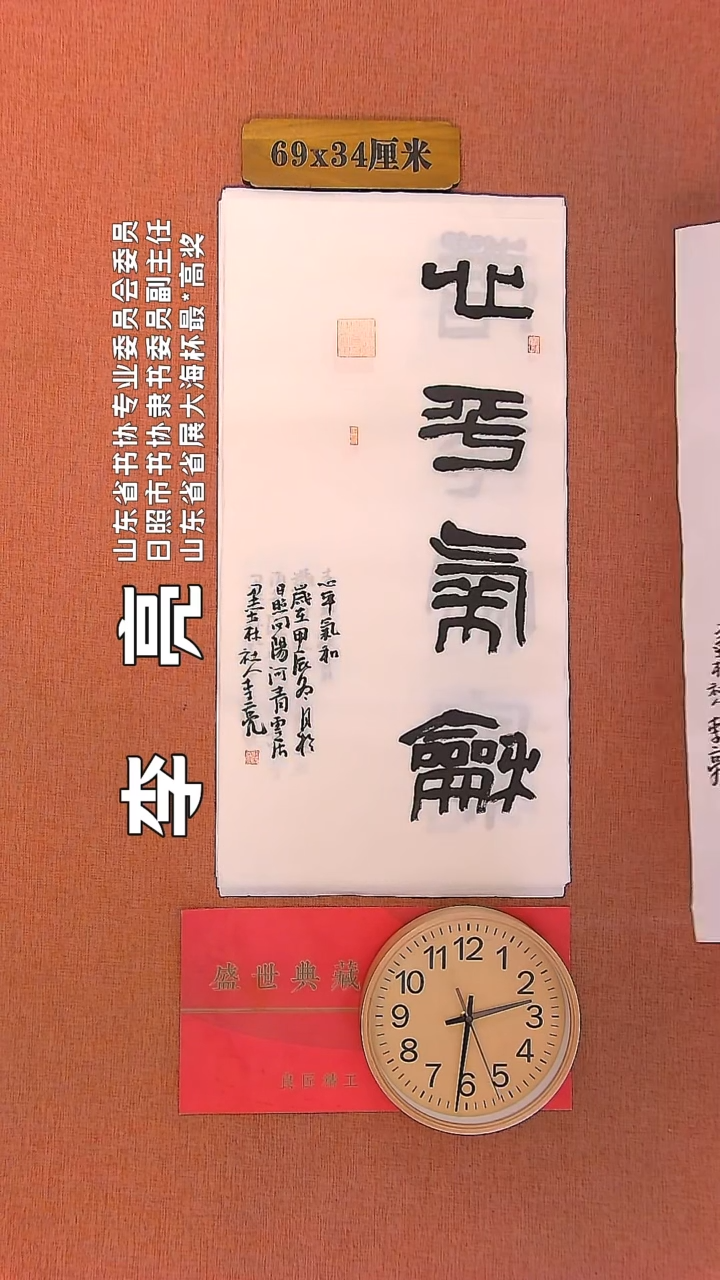 69x34厘米
山东省书协专业委员会委员
日照市书协隶书委员副主任
山东省省展大海杯最*高奖
李亮
平氣龢
心平氣和
歲在甲辰冬月於
日照向陽河青雲居
社人李亮
盛世典藏
12
1
2
3
4
5
6
7
8
9
10
11